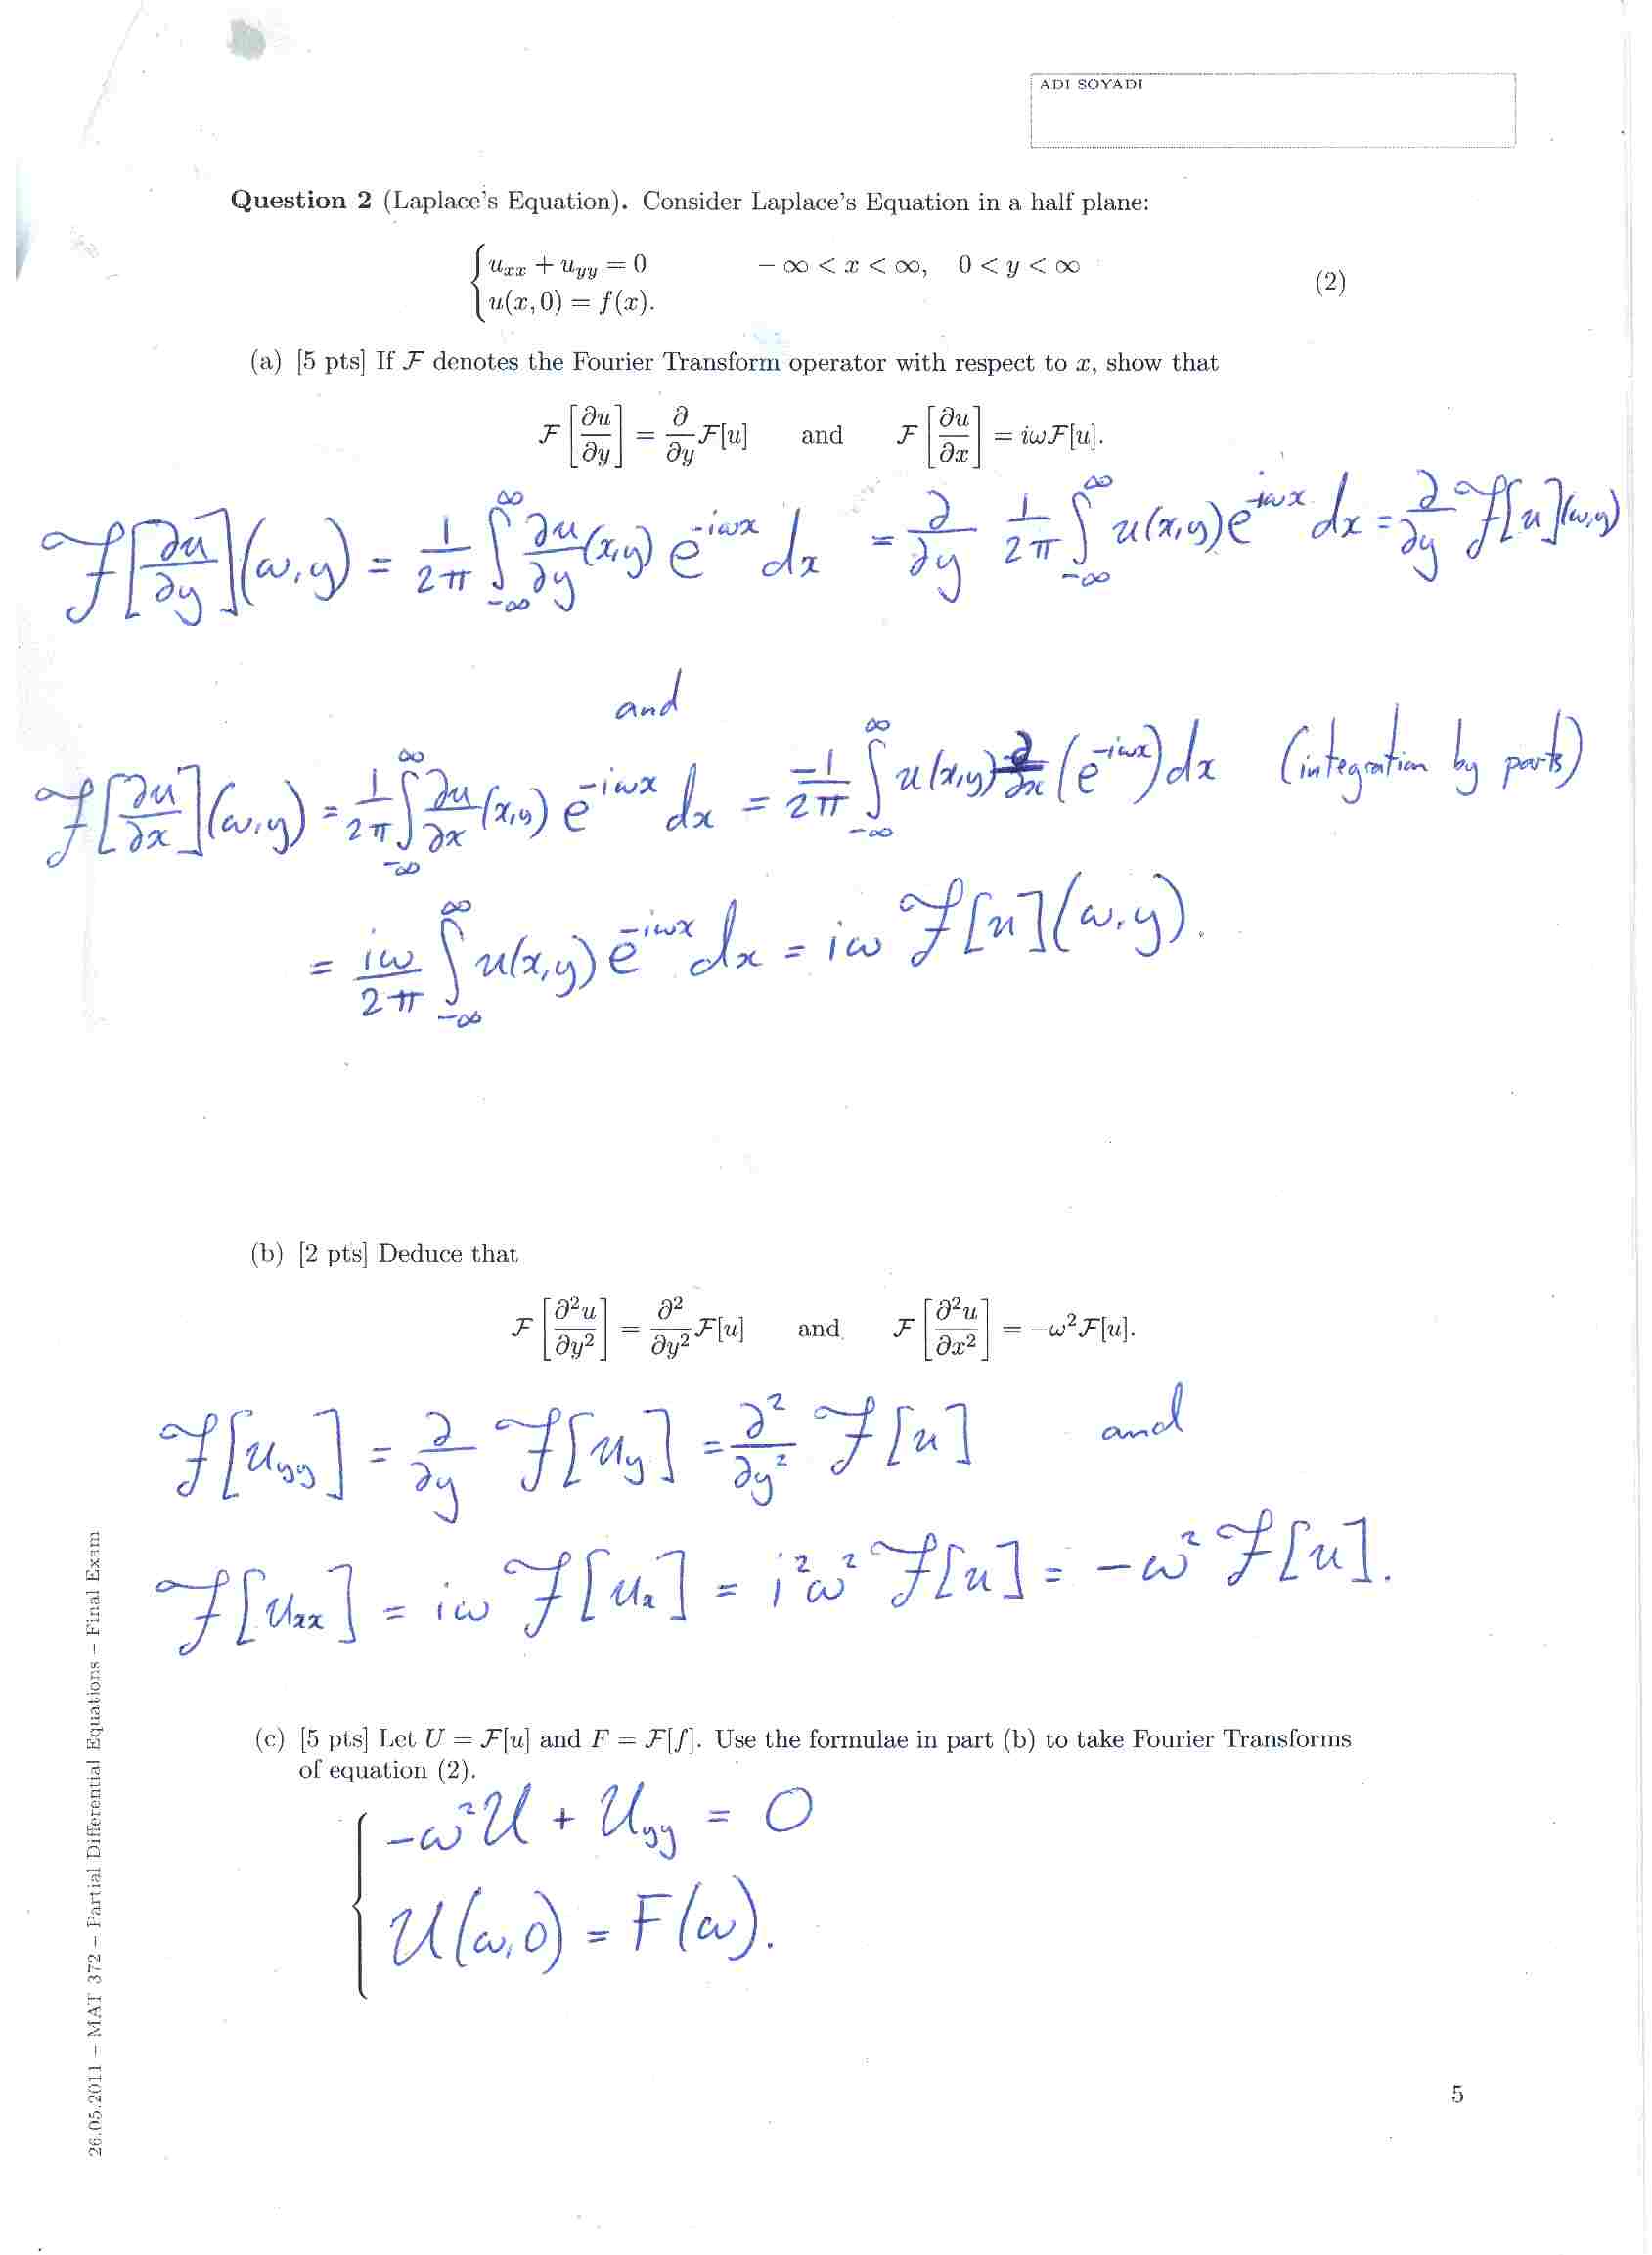 ADI SOYADI
Question 2 (Laplace's Equation). Consider Laplace's Equation in a half plane:
{ u_{xx} + u_{yy} = 0    − ∞ < x < ∞,  0 < y < ∞
u(x, 0) = f(x).    (2)
(a) [5 pts] If ℱ denotes the Fourier Transform operator with respect to x, show that
ℱ[∂u/∂y] = ∂/∂y ℱ[u]    and    ℱ[∂u/∂x] = iωℱ[u].
ℱ[∂u/∂y](ω,y) = 1/2π ∫_{-∞}^{∞} ∂u/∂y (x,y) e^{-iωx} dx = ∂/∂y 1/2π ∫_{-∞}^{∞} u(x,y) e^{-iωx} dx = ∂/∂y ℱ[u](ω,y)
and
ℱ[∂u/∂x](ω,y) = 1/2π ∫_{-∞}^{∞} ∂u/∂x (x,y) e^{-iωx} dx = -1/2π ∫_{-∞}^{∞} u(x,y) ∂/∂x (e^{-iωx}) dx (integration by parts)
= iω/2π ∫_{-∞}^{∞} u(x,y) e^{-iωx} dx = iω ℱ[u](ω,y).
(b) [2 pts] Deduce that
ℱ[∂²u/∂y²] = ∂²/∂y² ℱ[u]    and    ℱ[∂²u/∂x²] = −ω²ℱ[u].
ℱ[u_{yy}] = ∂/∂y ℱ[u_y] = ∂²/∂y² ℱ[u]    and
ℱ[u_{xx}] = iω ℱ[u_x] = i²ω² ℱ[u] = −ω² ℱ[u].
(c) [5 pts] Let U = ℱ[u] and F = ℱ[f]. Use the formulae in part (b) to take Fourier Transforms
of equation (2).
{ −ω²U + U_{yy} = 0
U(ω,0) = F(ω).
26.05.2011 – MAT 372 – Partial Differential Equations – Final Exam
5